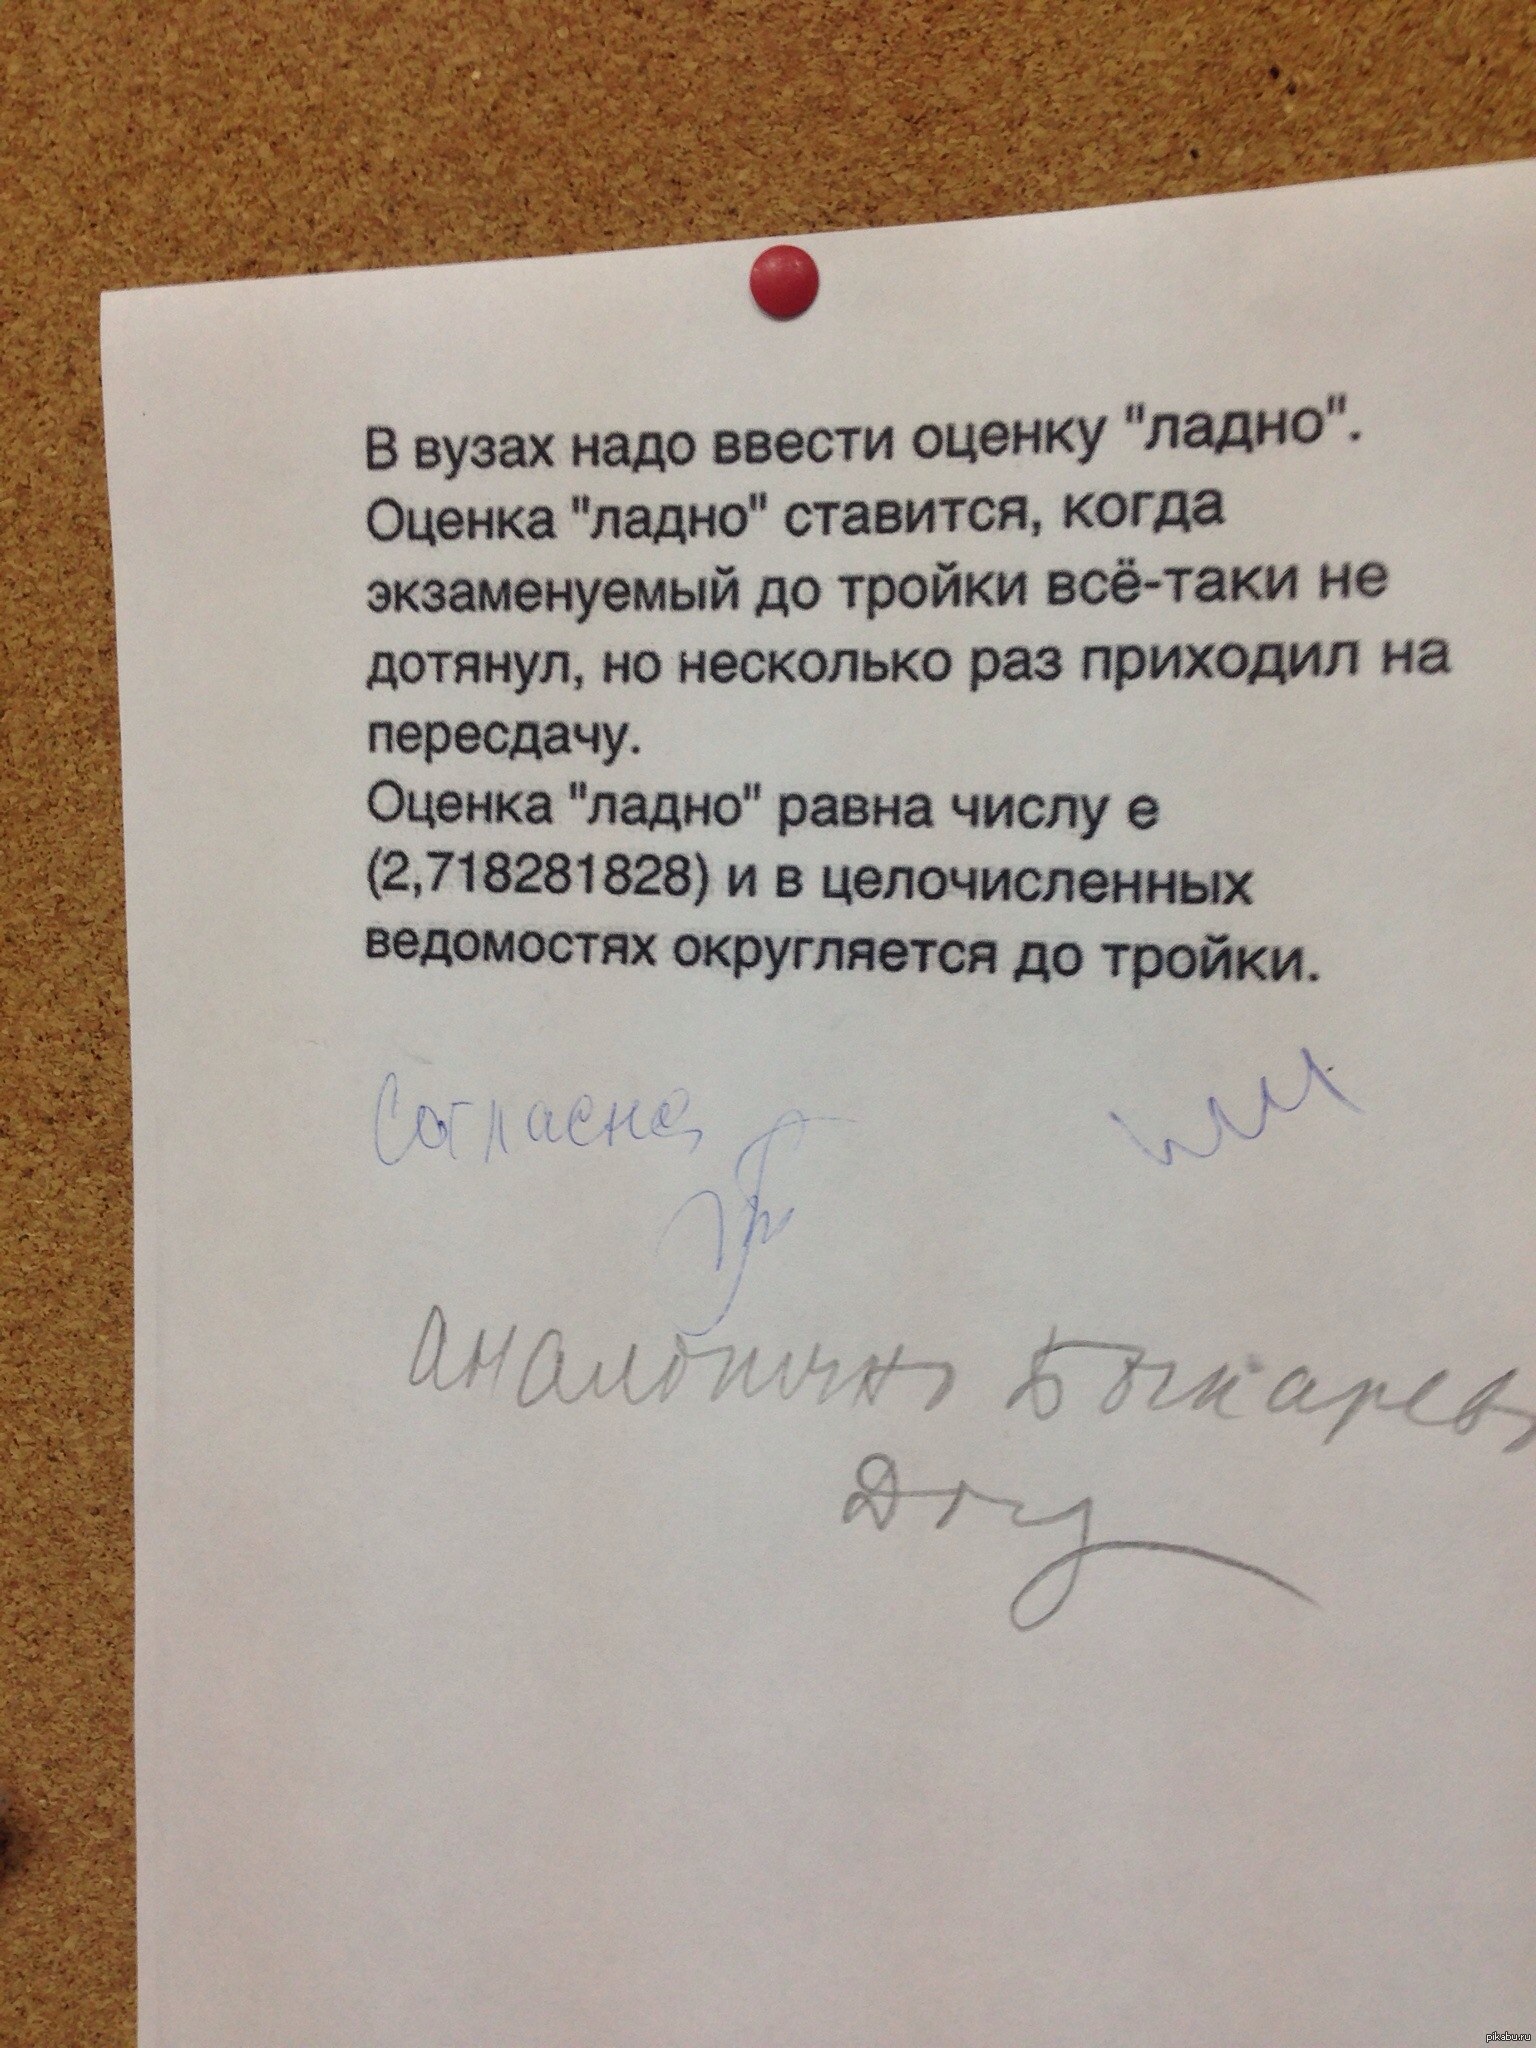 В вузах надо ввести оценку "ладно".
Оценка "ладно" ставится, когда
экзаменуемый до тройки всё-таки не
дотянул, но несколько раз приходил на
пересдачу.
Оценка "ладно" равна числу е
(2,718281828) и в целочисленных
ведомостях округляется до тройки.
Согласна
аналогично
pikabu.ru